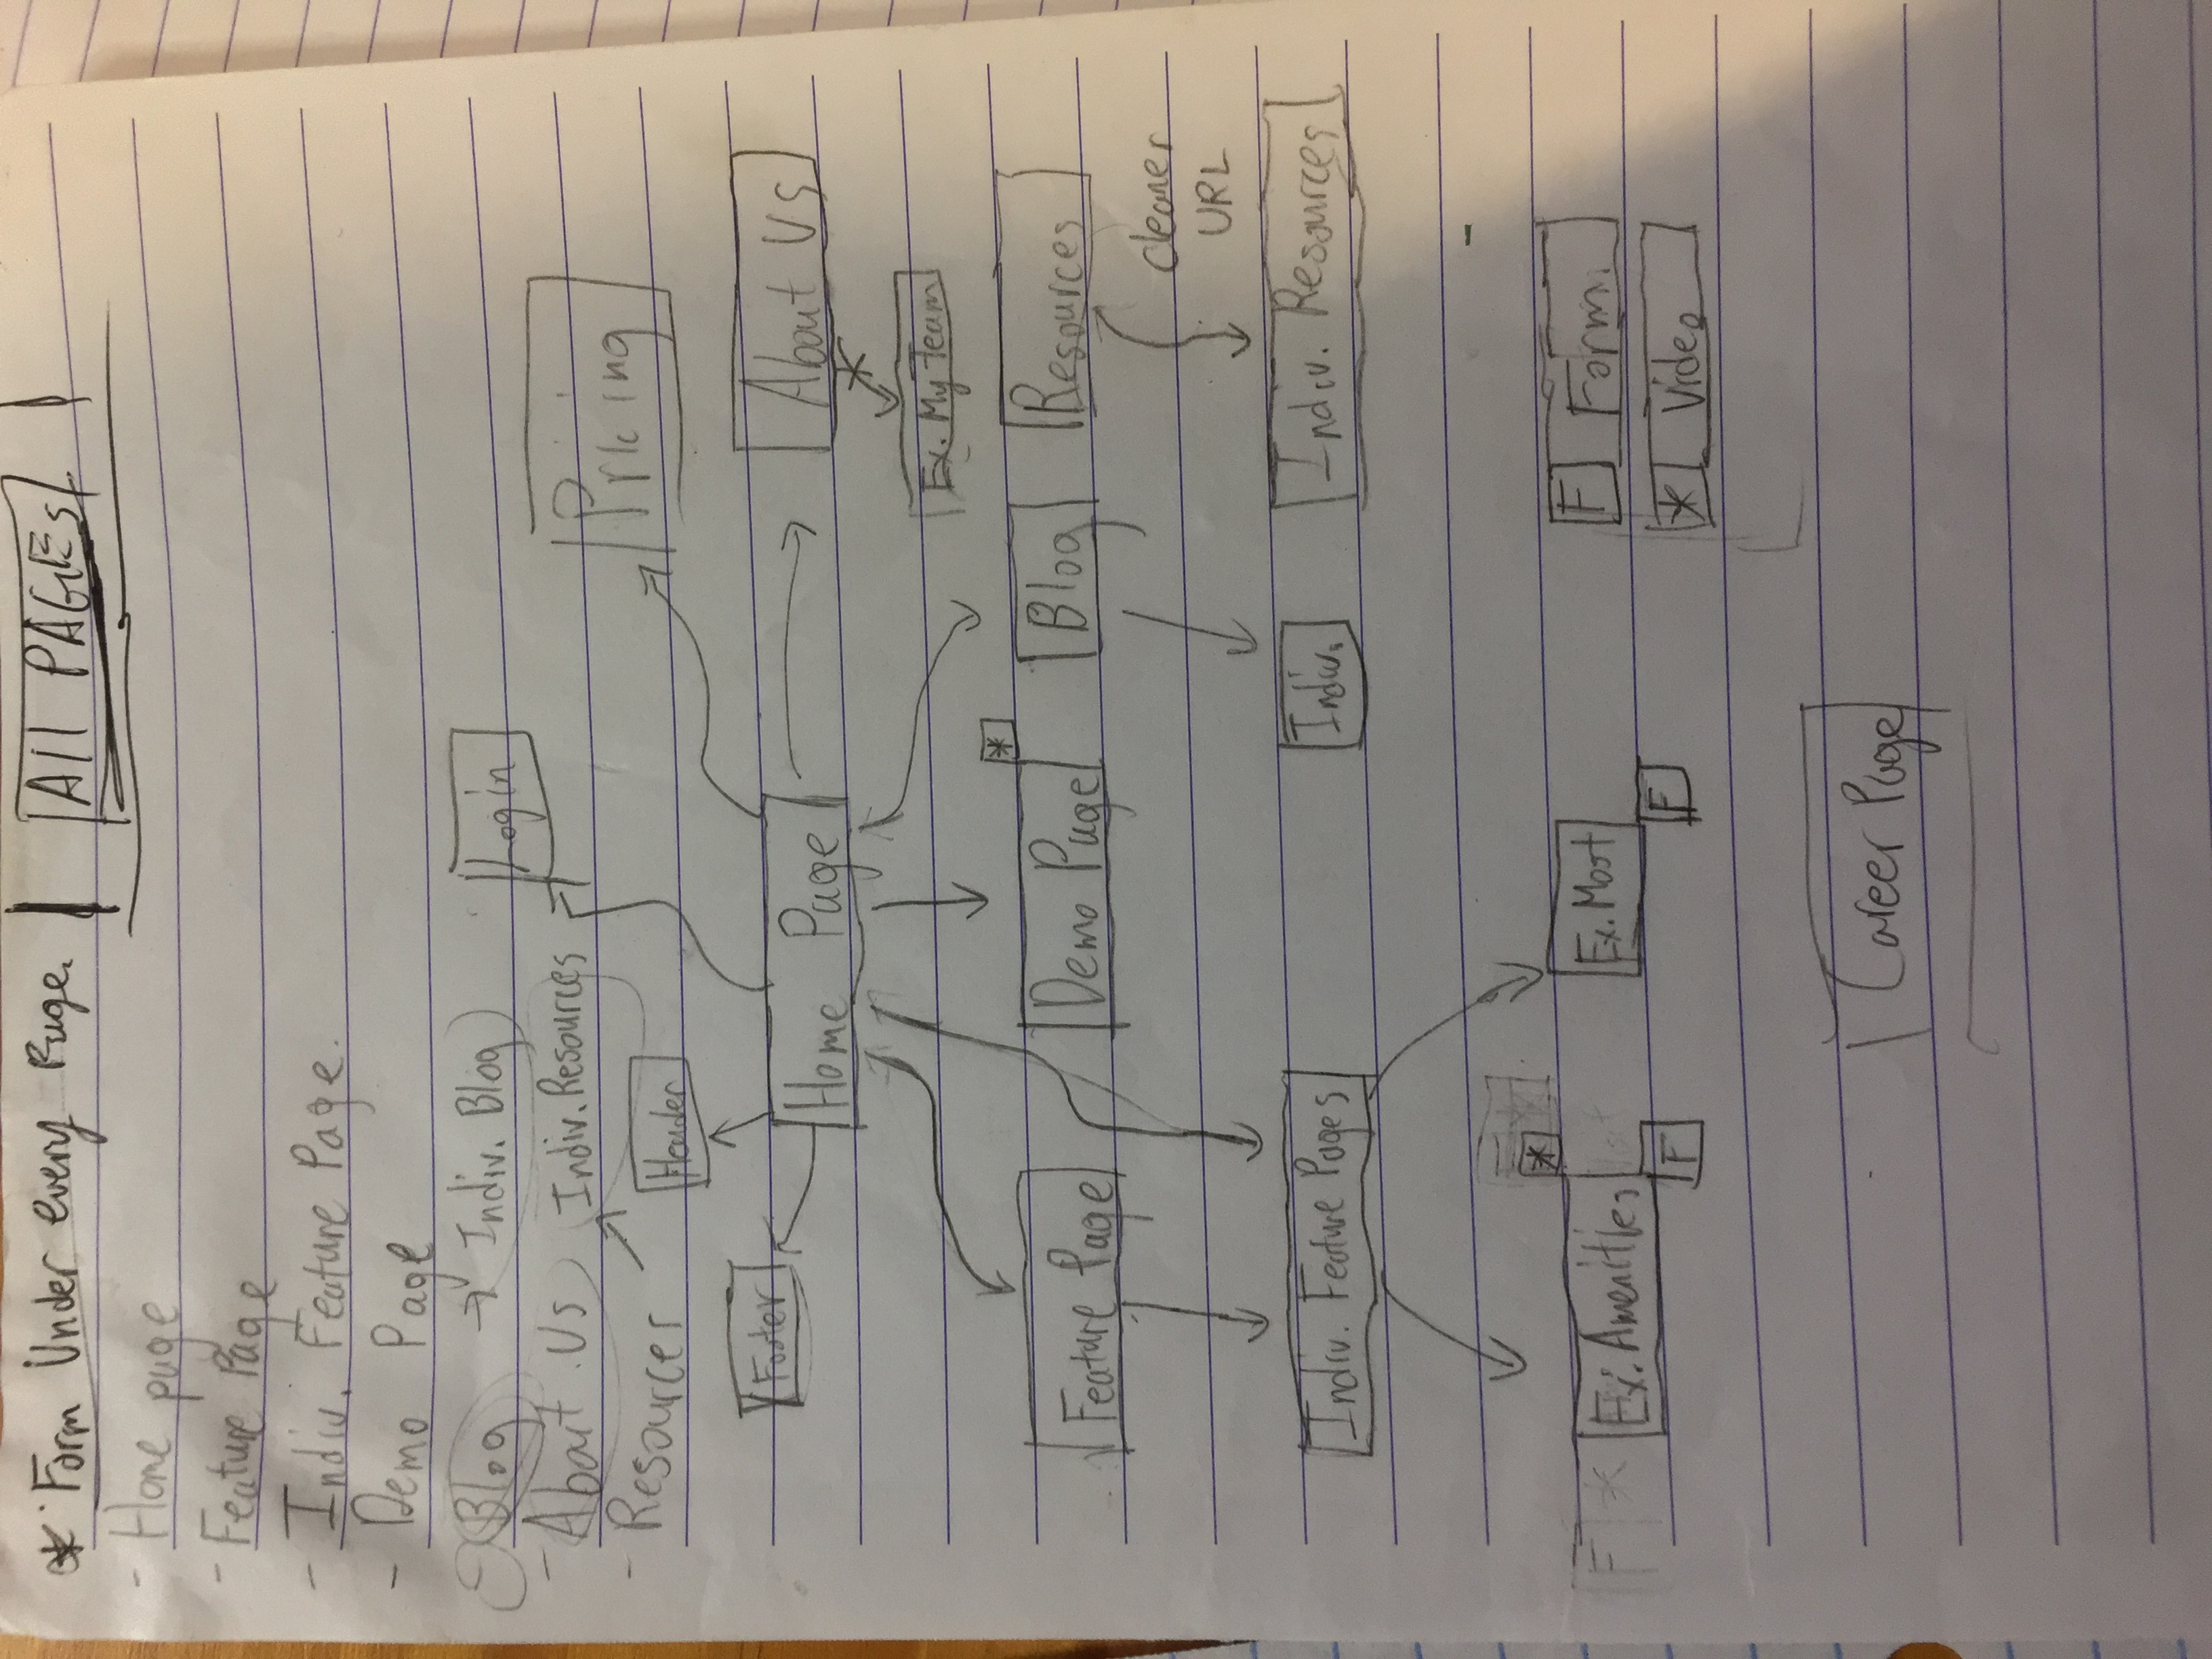 * Form Under every Page. | All PAGEs |
- Home page
- Feature Page
- Indiv. Feature Page.
- Demo Page
- Blog → Indiv. Blog
Login
- About Us Indiv. Resources
Pricing
- Resources
Header
Footer
Home Page
About Us
*
Ex. My Team
*
Feature Page
Demo Page
Blog
Resources
cleaner
URL
Indiv. Feature Pages
Indiv.
Indiv. Resources
*
F *
Ex. Amenities
Ex. Most
F Form
F
F
* Video
Career Page